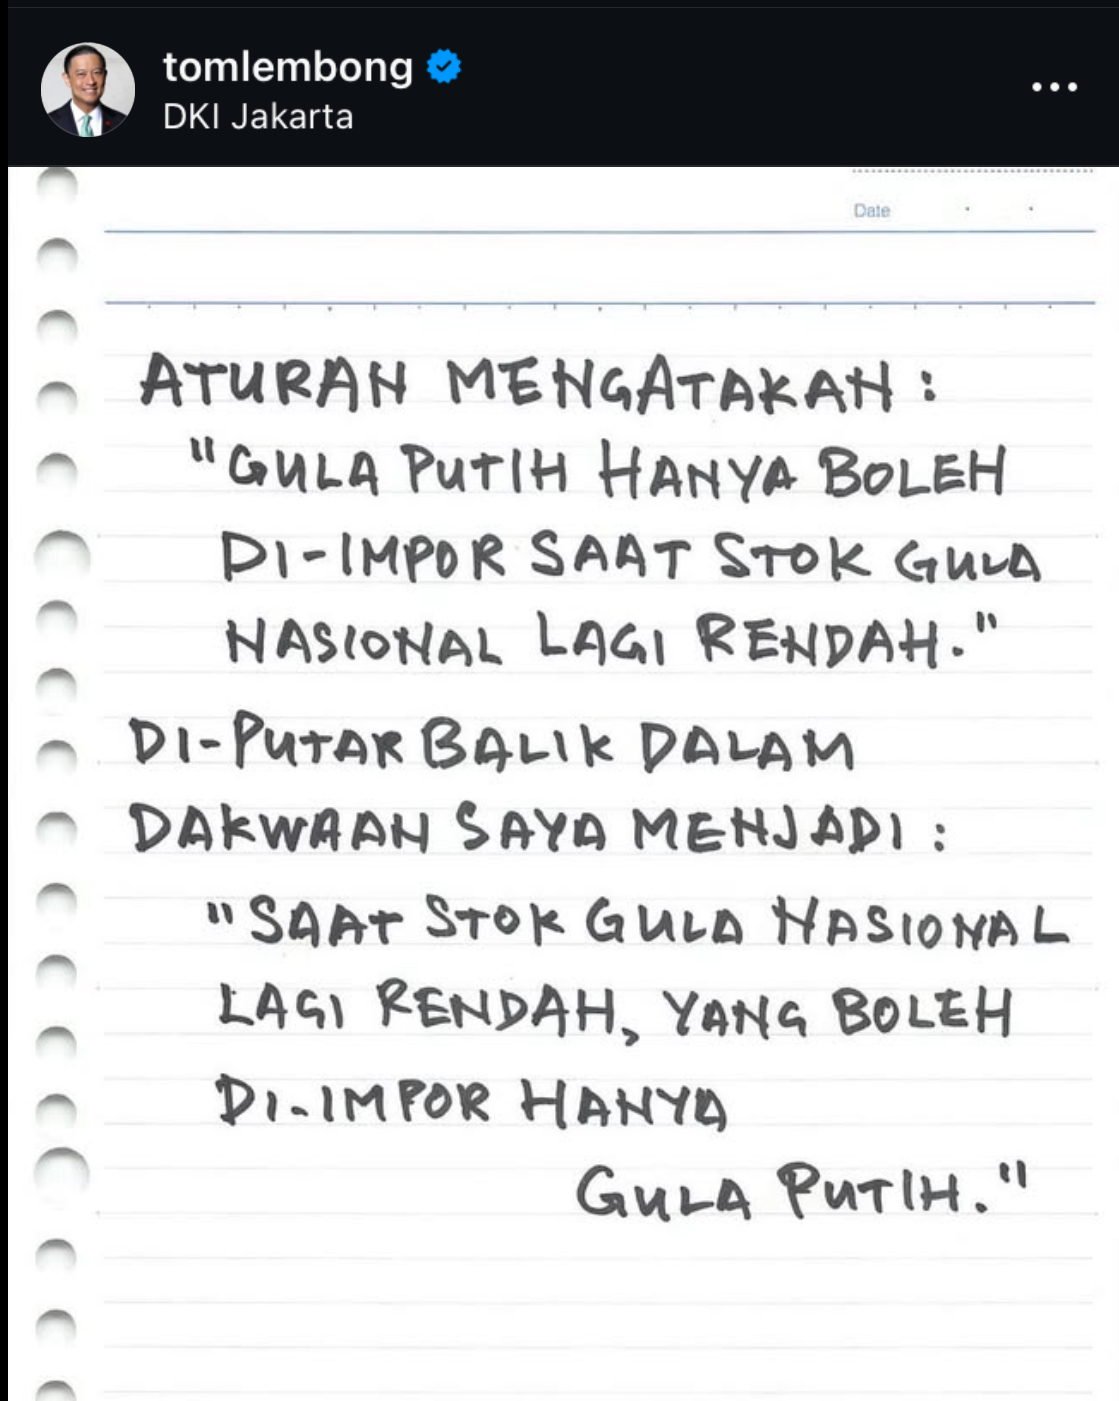 tomlembong
DKI Jakarta
Date
ATURAN MENGATAKAN :
"GULA PUTIH HANYA BOLEH
DI-IMPOR SAAT STOK GULA
NASIONAL LAGI RENDAH."
DI-PUTAR BALIK DALAM
DAKWAAN SAYA MENJADI :
"SAAT STOK GULA NASIONAL
LAGI RENDAH, YANG BOLEH
DI-IMPOR HANYA
GULA PUTIH."